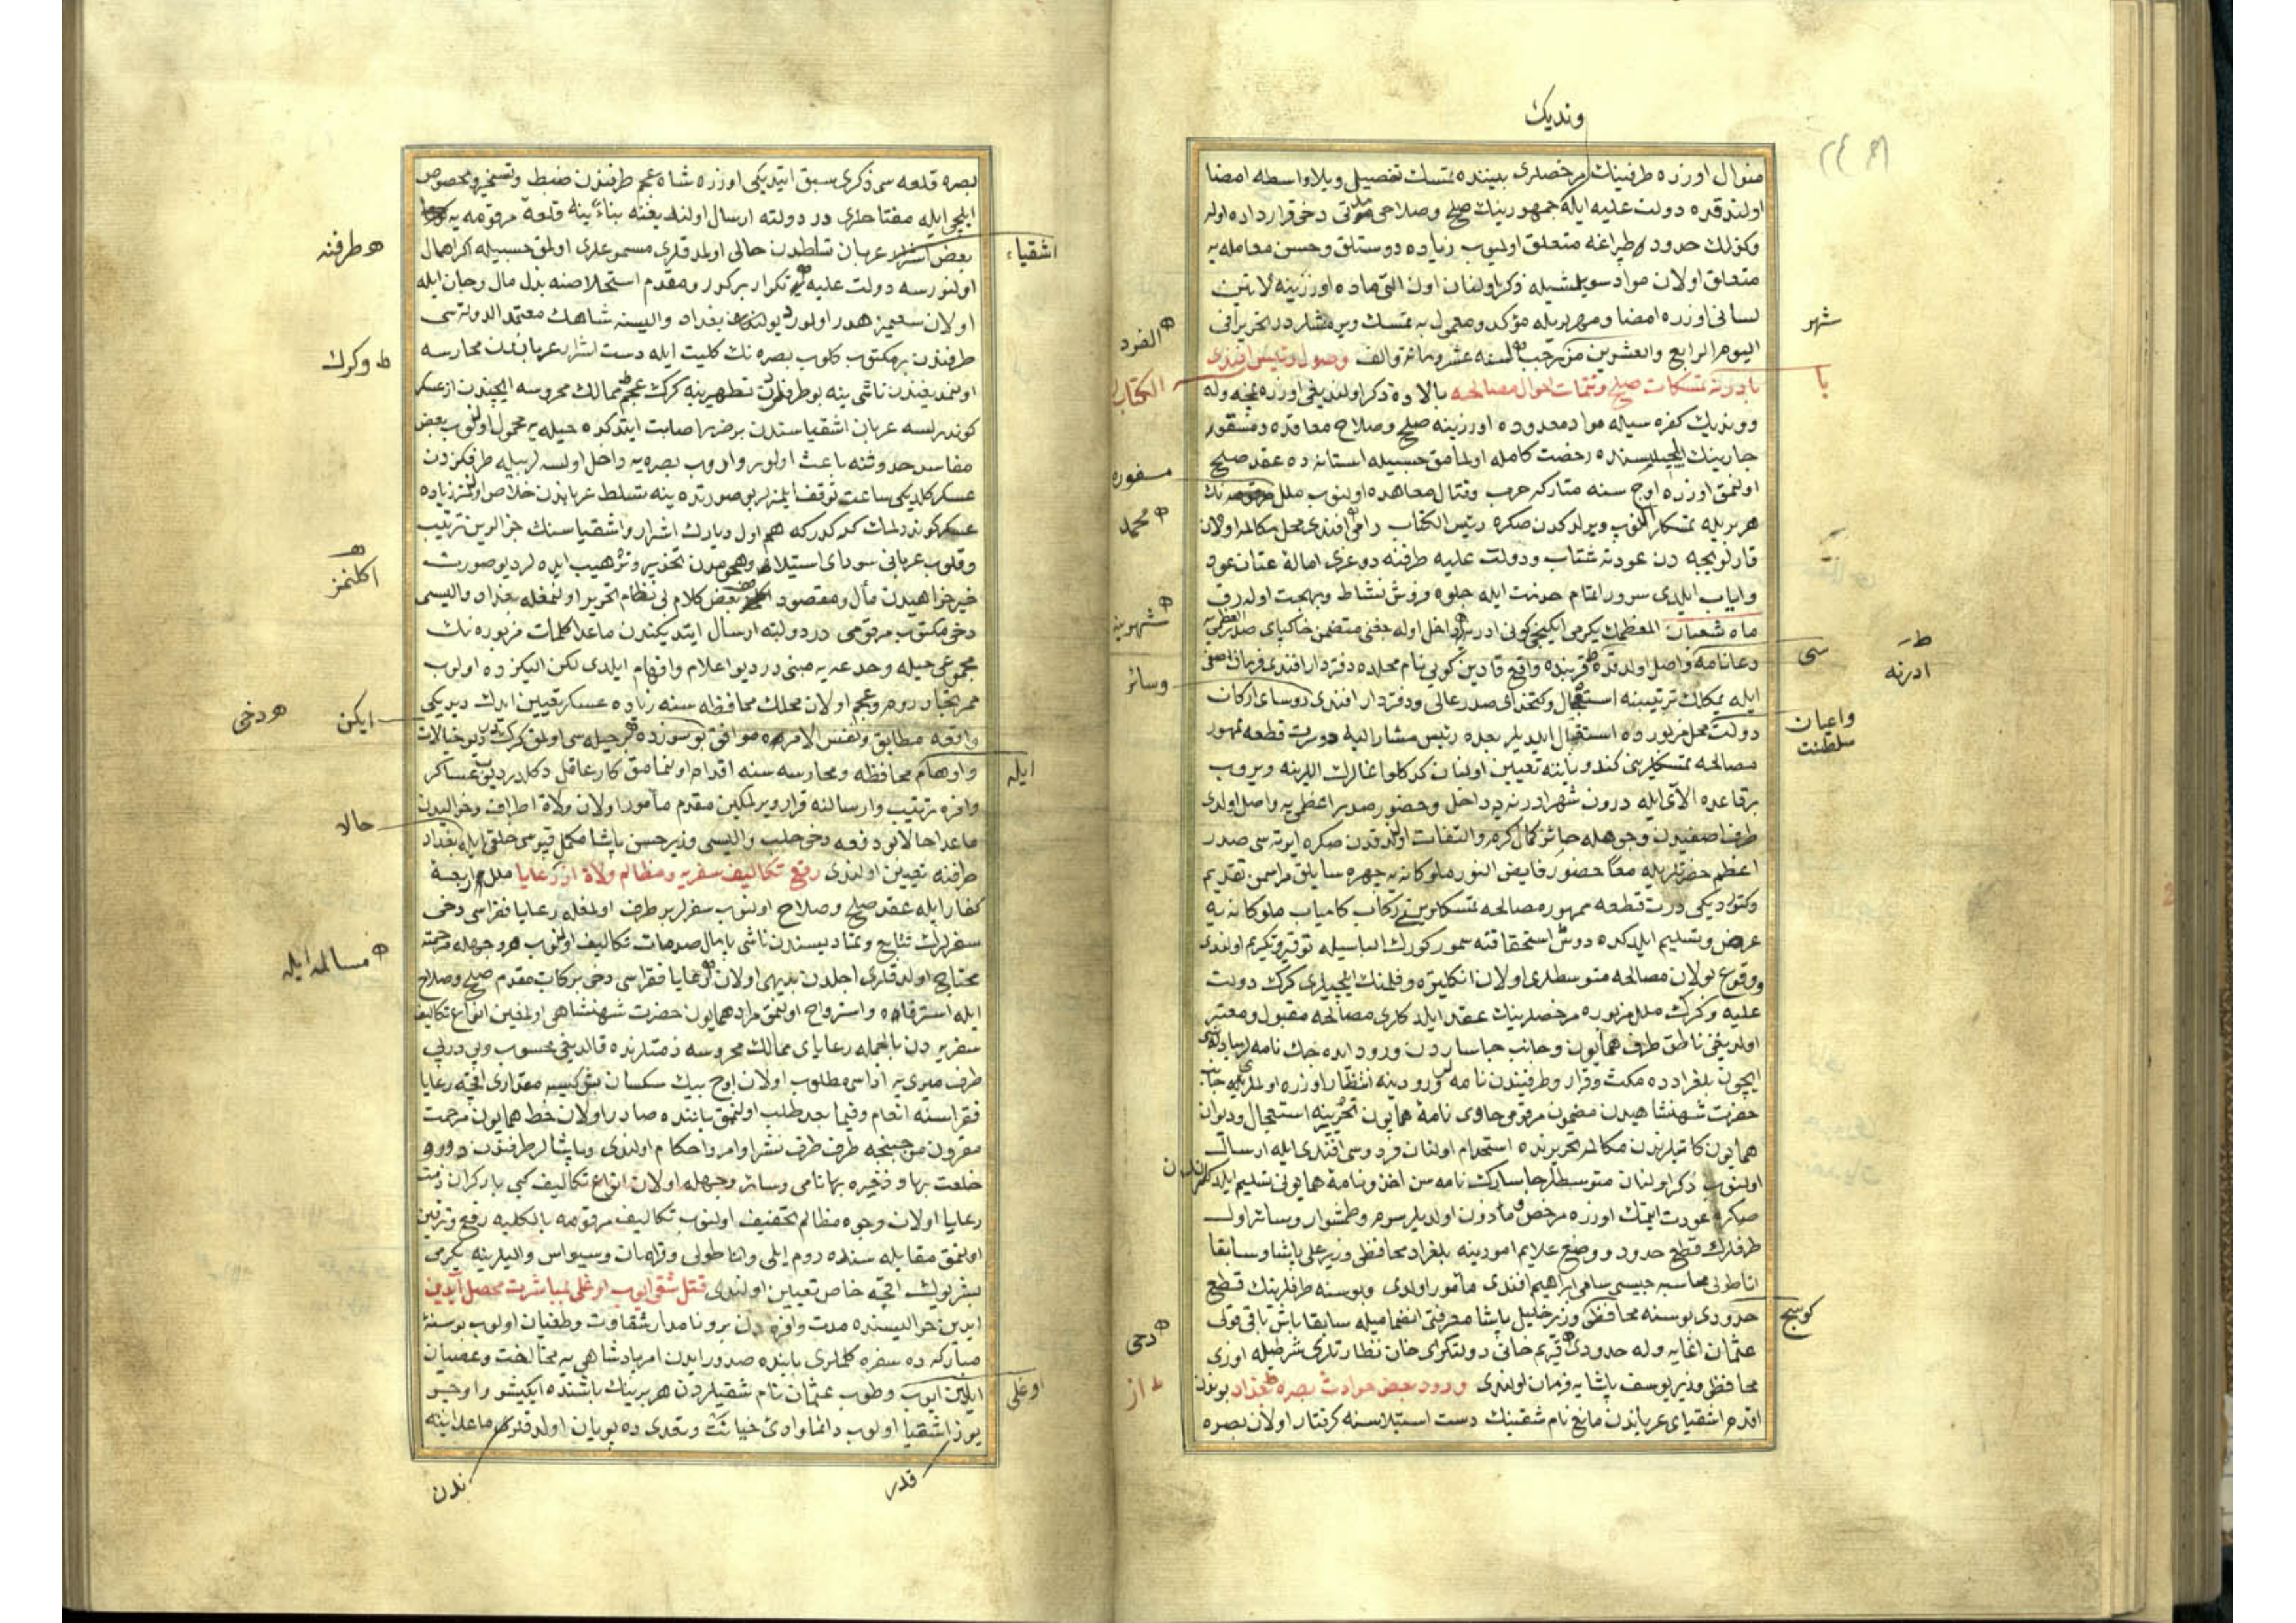 ونديك
منوال اوزره طرفينك مرخصلرى بيننده تمسك تفصيلى وبلاواسطه امضا
اولندقده دولت عليه ايله جمهورينك صلح وصلاحى دخى قرارداده اولە
وكذلك حدود وطپراغه متعلق اولميوب زياده دوستلق وحسن معامله يه
متعلق اولان مواد سويلشيله ذكر اولنان اون التى ماده اوزرينه لاتين
لسانى اوزره امضا ومهريله مؤكد ومعمول به تمسك ويرمشلردر تحريرا فى
شهر
اليوم الرابع والعشرين من رجب الفرد لسنه عشر ومائة والف وصول رئيس افندى
الكتاب
با دولة تمسكات صلح وتتمات احوال مصالحه بالاده ذكر اولنديغى اوزره نمچه وله
وونديك كفره سيله مواد معدوده اوزرينه صلح وصلاح معاقده ومسقو
چارينك ايلچيسنده رخصت كامله اولمامق حسبيله استانه ده عقد صلح
اولنمق اوزره اوچ سنه متاركه حرب وقتال معاهده اولنوب ملل مسفوره نك
هر بريله تمسكلر النوب ويرلدكدن صكره رئيس الكتاب رامى محمد افندى محل مكالمه اولان
قارلوويجه دن عودته شتاب ودولت عليه طرفنه دوغرى اماله عنان عود
واياب ايلدى سرور اغتنام حضرت ايله جلوه فروش نشاط وبهجت اوله رق
ماه شعبان المعظمك يكرمى ايكنجى كونى ادرنه شهرينه داخل
دعانامه سى واصل اولدقده ادرنه قربنده واقع قادين كويى نام محلده دفتردار افندى فرمان اصفى
وسائر
ايله يمكلك ترتيبنه استعجال وكتخداى صدر عالى ودفتردار افندى روساى اركان
واعيان سلطنت
دولت محل مزبورده استقبال ايلديلر بعده رئيس مشار اليه درت قطعه ممهور
مصالحه تمسكلرينى كندو ياننه تعيين اولنان كدكلو اغالرك اللرينه ويروب
برقاعده الاى ايله درون شهر ادرنه يه داخل وحضور صدر اعظمى يه واصل اولدى
طرف اصفيدن وجوهله حائز كمال كرم والتفات اولندقدن صكره ايرته سى صدر
اعظم حضرتلريله معا حضور فايض النور ملوكانه يه چهره سايلق مراسمن تقديم
وكتوردیکى درت قطعه ممهور مصالحه تمسكلرين ركاب كامياب ملوكانه يه
عرض وتسليم ايلدكده دوش استحقاقنه سمور كورك الباسيله توقير وتكريم اولندى
ووقوع بولان مصالحه متوسطلرى اولان انكلتره وفلمنك ايلچيلرى كرك دولت
عليه وكرك ملل مزبوره مرخصلرينك عقد ايلدكلرى مصالحه مقبول ومعتبر
اولديغنى ناطق طرف همايون وجانب چاساردن ورود ايده جك نامه لر
ايچون بلغرادده مكث وقرار وطرفيندن نامه لر ورودينه انتظار اوزره اولملريله
حضرت شهنشاهيدن مضمون مرقومى حاوى نامه همايون تحريرينه استعجال وديوان
همايون كاتبلرندن مكالمه لر تحريرنده استخدام اولنان فردوسى افندى ايله ارسال
اولنوب ذكر اولنان متوسطلر چاسارك نامه سن اخذ ونامه همايونى تسليم ايلدكلرندن
صكره عودت ايتمك اوزره مرخص ومأذون اولديلر سرم وطمشوار وسائر اول
طرفلرك قطع حدود ووضع علايم امورينه بلغراد محافظى وزير على پاشا وسابقا
اناطولى محاسبه جيسى سامى ابراهيم افندى مأمور اولدى وبوسنه طرفلرينك قطع
حدودى بوسنه محافظى كوسج وزير خليل پاشا معرفتى انضماميله سابقا باش باقى قولى
عثمان اغايه وله حدودى دخى قريم خانى دولتكراى خان نظارتلرى شرطيله اوزى
محافظى وزير يوسف پاشايه فرمان اولندى ورود بعض حوادث بصره از بغداد بوندن
اقدم اشقياى عرباندن مانع نام شقينك دست استيلاسنه كرفتار اولان بصره
بصره قلعه سى ذكرى سبق ايتديكى اوزره شاه عجم طرفندن ضبط وتسخير ومخصوص
ايلچى ايله مفتاحلرى در دولته ارسال اولنديغنه بناء ينه قلعه مرقومه يه
بعض اشقياء عربان تسلطدن خالى اولمدقلرى مسموعلرى اولمق حسبيله اكر اهمال
اولنورسه دولت عليه طرفنه تكرار بر كور ومقدم استخلاصنه بذل مال وجان ايله
اولان سعيمز هدر اولور ديو بغداد واليسنه شاهك معتمد الدولة سى
طرفندن بر مكتوب كلوب بصره نك كليت ايله دست اشرار عرباندن محارسه
اولنمديغندن ناشى ينه بو طرفلرك تطهيرينه كرك عجم وكرك ممالك محروسه ايچندن از عسكر
كوندريلسه عربان اشقياسندن بر ضرر اصابت ايتدكده حيله يه محمول اولنوب بعض
مفاسد حدوثنه باعث اولور واروب بصره يه داخل اولسه لر بيله طرفكزدن
عسكر كلديكى ساعت توقف ايلمزلر بو صورتده ينه تسلط عرباندن خلاص اولنمز زياده
عسكر كوندرلمك كركدر كه هم اول ديارك اشرار واشقياسنك جزالرين ترتيب
وقلوب عربانى سوداى استيلا وهجومدن تحذير وترهيب ايده لر ديو صورت
خيرخواهيدن مآل ومقصود اكلنمز بعض كلام بى نظام تحرير اولنمغله بغداد واليسى
دخى مكتوب مرقومى در دولته ارسال ايتديكندن ماعدا كلمات مزبوره نك
مجموعى حيله وخدعه يه مبنى در ديو اعلام وافهام ايلدى لكن اليكزده اولوب
ممر تجار روم وعجم اولان محلك محافظه سنه زياده عسكر تعيين ايدك ديديكى
واقعه مطابق ونفس الامره موافق ايكن بو سوزده دخى بر حيله سى اولمق كركدر ديو خيالات
واوهام ايله محافظه ومحارسه سنه اقدام اولنمامق كار عاقل دكلدر ديوب عساكر
وافره ترتيب وارسالنه قرار ويرلمكين مقدم مأمور اولان ولاة اطراف وحواليدن
ماعدا حالا بو دفعه دخى حلب واليسى وزير حسن پاشا مكمل قپوسى خلقى ايله بغداد
طرفنه تعيين اولندى رفع تكاليف سفريه ومظالم ولاة از رعايا ملل اربعه
كفار ايله عقد صلح وصلاح اولنوب سفرلر بر طرف اولمغله رعايا فقراسى دخى
سفرلرك تتابع وتماديسندن ناشى پايمال صدمات تكاليف اولنوب هر وجهله مرحمته
محتاج اولدقلرى اجلدن بديهى اولان رعايا فقراسى دخى بركات مقدم صلح وصلاح مسالمه ايله
ايله استرفاه واسترواح اولنمق مراد همايون حضرت شهنشاهى اولمغين انواع تكاليف
سفريه دن بالجمله رعاياى ممالك محروسه ذمتلرنده قالديغى محسوب وپى درپى
طرف ميرى يه اداسى مطلوب اولان اوچ بيك سكسان بش كيسه مقدارى اقچه رعايا
فقراسنه انعام وفيما بعد طلب اولنمق باننده صادر اولان خط همايون مرحمت
مقرون موجبنجه طرف طرف نشر اوامر واحكام اولندى وپاشالر طرفندن دورو
خلعت بها وذخيره بها نامى وسائر وجهله اولان انواع تكاليف كبى بار كران ذمت
رعايا اولان وجوه مظالم تخفيف اولنوب تكاليف مرقومه بالكليه رفع وترقين
اولنمق مقابله سنده روم ايلى واناطولى وقرامان وسيواس واليلرينه يكرمى
بشر يوك اقچه خاص تعيين اولندى قتل شقى ايوب اوغلى بمباشرت محصل آيدين
ايدين حواليسنده مدت وافره دن برو نامدار شقاوت وطغيان اولوب بو سنه
مباركه ده سفره كلملرى باننده صدور ايدن امر پادشاهى يه مخالفت وعصيان
ايدن ايوب اوغلى وطوب عثمان نام شقيلردن هر برينك باشنده ايكيشر واوچر
يوز قدر اشقيا اولوب دائما وادئ خيانت وتعدى ده پويان اولدقلرندن ماعدا ينه